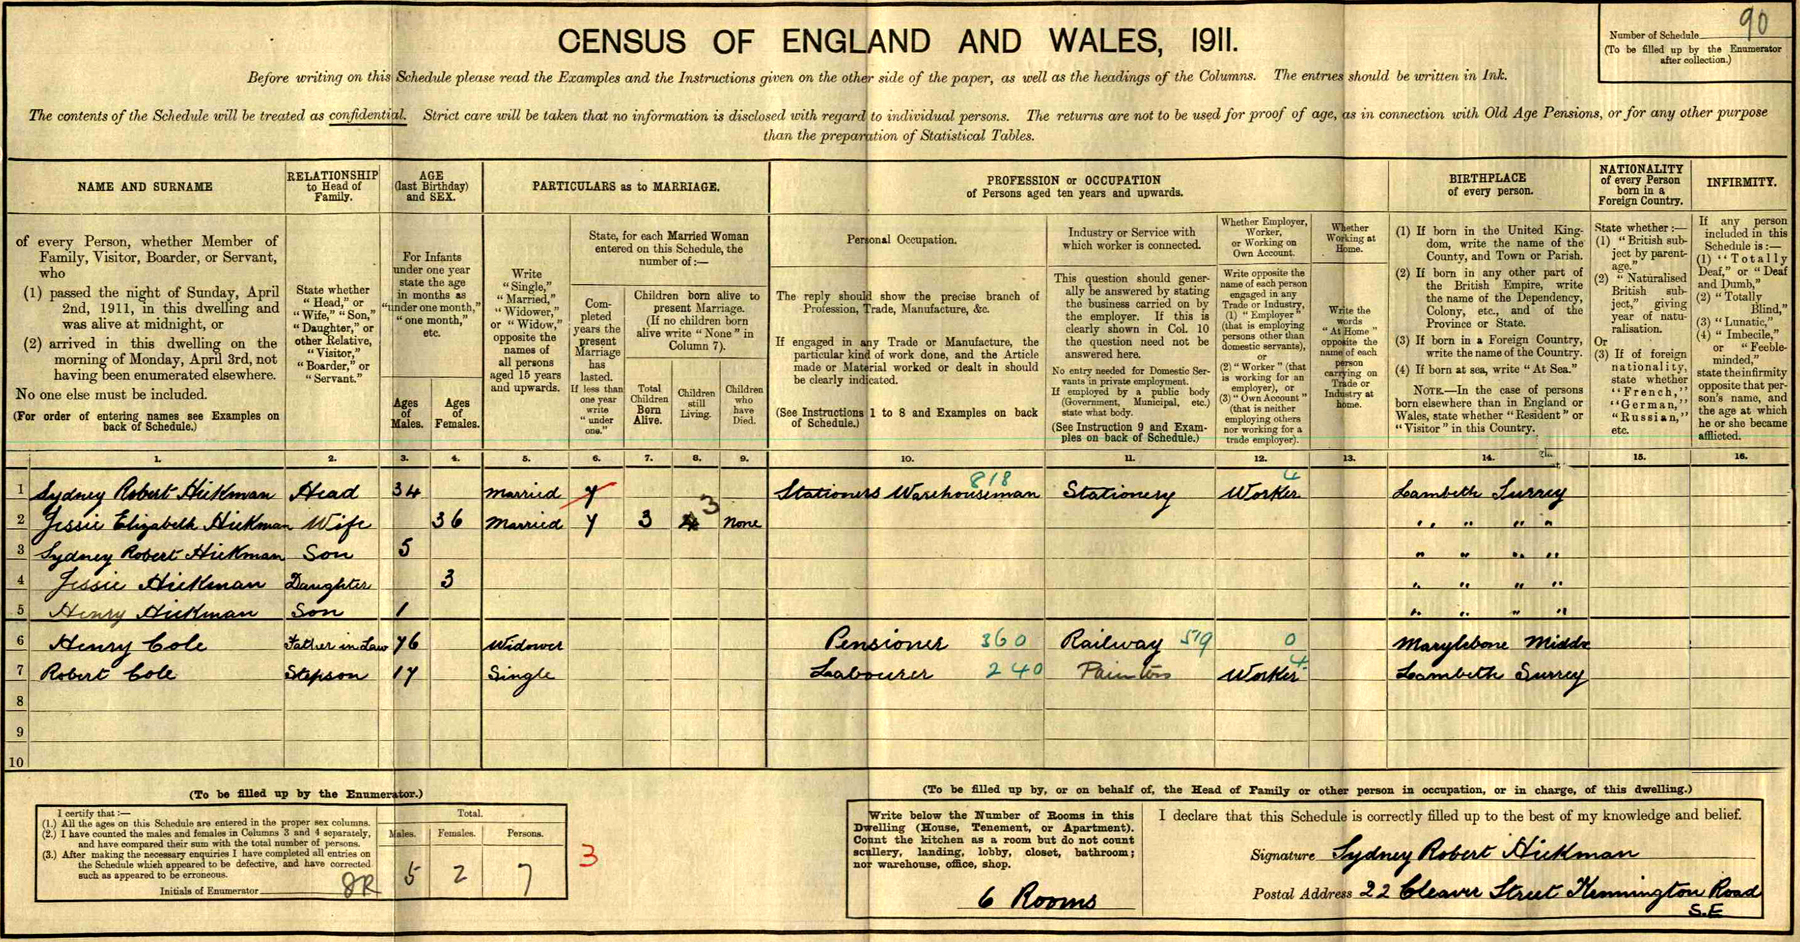 90
Number of Schedule
(To be filled up by the Enumerator
after collection.)
CENSUS OF ENGLAND AND WALES, 1911.
Before writing on this Schedule please read the Examples and the Instructions given on the other side of the paper, as well as the headings of the Columns. The entries should be written in Ink.
The contents of the Schedule will be treated as confidential. Strict care will be taken that no information is disclosed with regard to individual persons. The returns are not to be used for proof of age, as in connection with Old Age Pensions, or for any other purpose
than the preparation of Statistical Tables.
NAME AND SURNAME
of every Person, whether Member of
Family, Visitor, Boarder, or Servant,
who
(1) passed the night of Sunday, April
2nd, 1911, in this dwelling and
was alive at midnight, or
(2) arrived in this dwelling on the
morning of Monday, April 3rd, not
having been enumerated elsewhere.
No one else must be included.
(For order of entering names see Examples on
back of Schedule.)
RELATIONSHIP
to Head of
Family.
State whether
"Head," or
"Wife," "Son,"
"Daughter," or
other Relative,
"Visitor,"
"Boarder," or
"Servant."
AGE
(last Birthday)
and SEX.
For Infants
under one year
state the age
in months as
"under one month,"
"one month,"
etc.
Ages
of
Males.
Ages
of
Females.
PARTICULARS as to MARRIAGE.
Write
"Single,"
"Married,"
"Widower,"
or "Widow,"
opposite the
names of
all persons
aged 15 years
and upwards.
State, for each Married Woman
entered on this Schedule, the
number of:—
Com-
pleted
years the
present
Marriage
has
lasted.
If less than
one year
write
"under
one."
Children born alive to
present Marriage.
(If no children born
alive write "None" in
Column 7).
Total
Children
Born
Alive.
Children
still
Living.
Children
who
have
Died.
PROFESSION or OCCUPATION
of Persons aged ten years and upwards.
Personal Occupation.
The reply should show the precise branch of
Profession, Trade, Manufacture, &c.
If engaged in any Trade or Manufacture, the
particular kind of work done, and the Article
made or Material worked or dealt in should
be clearly indicated.
(See Instructions 1 to 8 and Examples on back
of Schedule.)
Industry or Service with
which worker is connected.
This question should gener-
ally be answered by stating
the business carried on by
the employer. If this is
clearly shown in Col. 10
the question need not be
answered here.
No entry needed for Domestic Ser-
vants in private employment.
If employed by a public body
(Government, Municipal, etc.)
state what body.
(See Instruction 9 and Exam-
ples on back of Schedule.)
Whether Employer,
Worker,
or Working on
Own Account.
Write opposite the
name of each person
engaged in any
Trade or Industry,
(1) "Employer"
(that is employing
persons other than
domestic servants),
or
(2) "Worker" (that
is working for an
employer), or
(3) "Own Account"
(that is neither
employing others
nor working for a
trade employer).
Whether
Working at
Home.
Write the
words
"At Home"
opposite the
name of each
person
carrying on
Trade or
Industry at
home.
BIRTHPLACE
of every person.
(1) If born in the United King-
dom, write the name of the
County, and Town or Parish.
(2) If born in any other part of
the British Empire, write
the name of the Dependency,
Colony, etc., and of the
Province or State.
(3) If born in a Foreign Country,
write the name of the Country.
(4) If born at sea, write "At Sea."
NOTE.—In the case of persons
born elsewhere than in England or
Wales, state whether "Resident" or
"Visitor" in this Country.
NATIONALITY
of every Person
born in a
Foreign Country.
State whether:—
(1) "British sub-
ject by parent-
age."
(2) "Naturalised
British sub-
ject," giving
year of natu-
ralisation.
Or
(3) If of foreign
nationality,
state whether
"French,"
"German,"
"Russian,"
etc.
INFIRMITY.
If any person
included in this
Schedule is:—
(1) "Totally
Deaf," or "Deaf
and Dumb,"
(2) "Totally
Blind,"
(3) "Lunatic,"
(4) "Imbecile,"
or "Feeble-
minded,"
state the infirmity
opposite that per-
son's name, and
the age at which
he or she became
afflicted.
1. 2. 3. 4. 5. 6. 7. 8. 9. 10. 11. 12. 13. 14. 15. 16.
1 Sydney Robert Hickman Head 34 Married 7 Stationers Warehouseman 818 Stationery Worker 4 Lambeth Surrey
2 Jessie Elizabeth Hickman Wife 36 Married 7 3 3 None " " " "
3 Sydney Robert Hickman Son 5 " " " "
4 Jessie Hickman Daughter 3 " " " "
5 Henry Hickman Son 1 " " " "
6 Henry Cole Father in Law 76 Widower Pensioner 360 Railway 519 0 Marylebone Middx
7 Robert Cole Stepson 17 Single Labourer 240 Painters Worker 4 Lambeth Surrey
8
9
10
(To be filled up by the Enumerator.)
I certify that:—
(1.) All the ages on this Schedule are entered in the proper sex columns.
(2.) I have counted the males and females in Columns 3 and 4 separately,
and have compared their sum with the total number of persons.
(3.) After making the necessary enquiries I have completed all entries on
the Schedule which appeared to be defective, and have corrected
such as appeared to be erroneous.
Initials of Enumerator JR
Total.
Males. Females. Persons.
5 2 7
3
(To be filled up by, or on behalf of, the Head of Family or other person in occupation, or in charge, of this dwelling.)
Write below the Number of Rooms in this
Dwelling (House, Tenement, or Apartment).
Count the kitchen as a room but do not count
scullery, landing, lobby, closet, bathroom;
nor warehouse, office, shop.
6 Rooms
I declare that this Schedule is correctly filled up to the best of my knowledge and belief.
Signature Sydney Robert Hickman
Postal Address 22 Cleaver Street Kennington Road
S.E